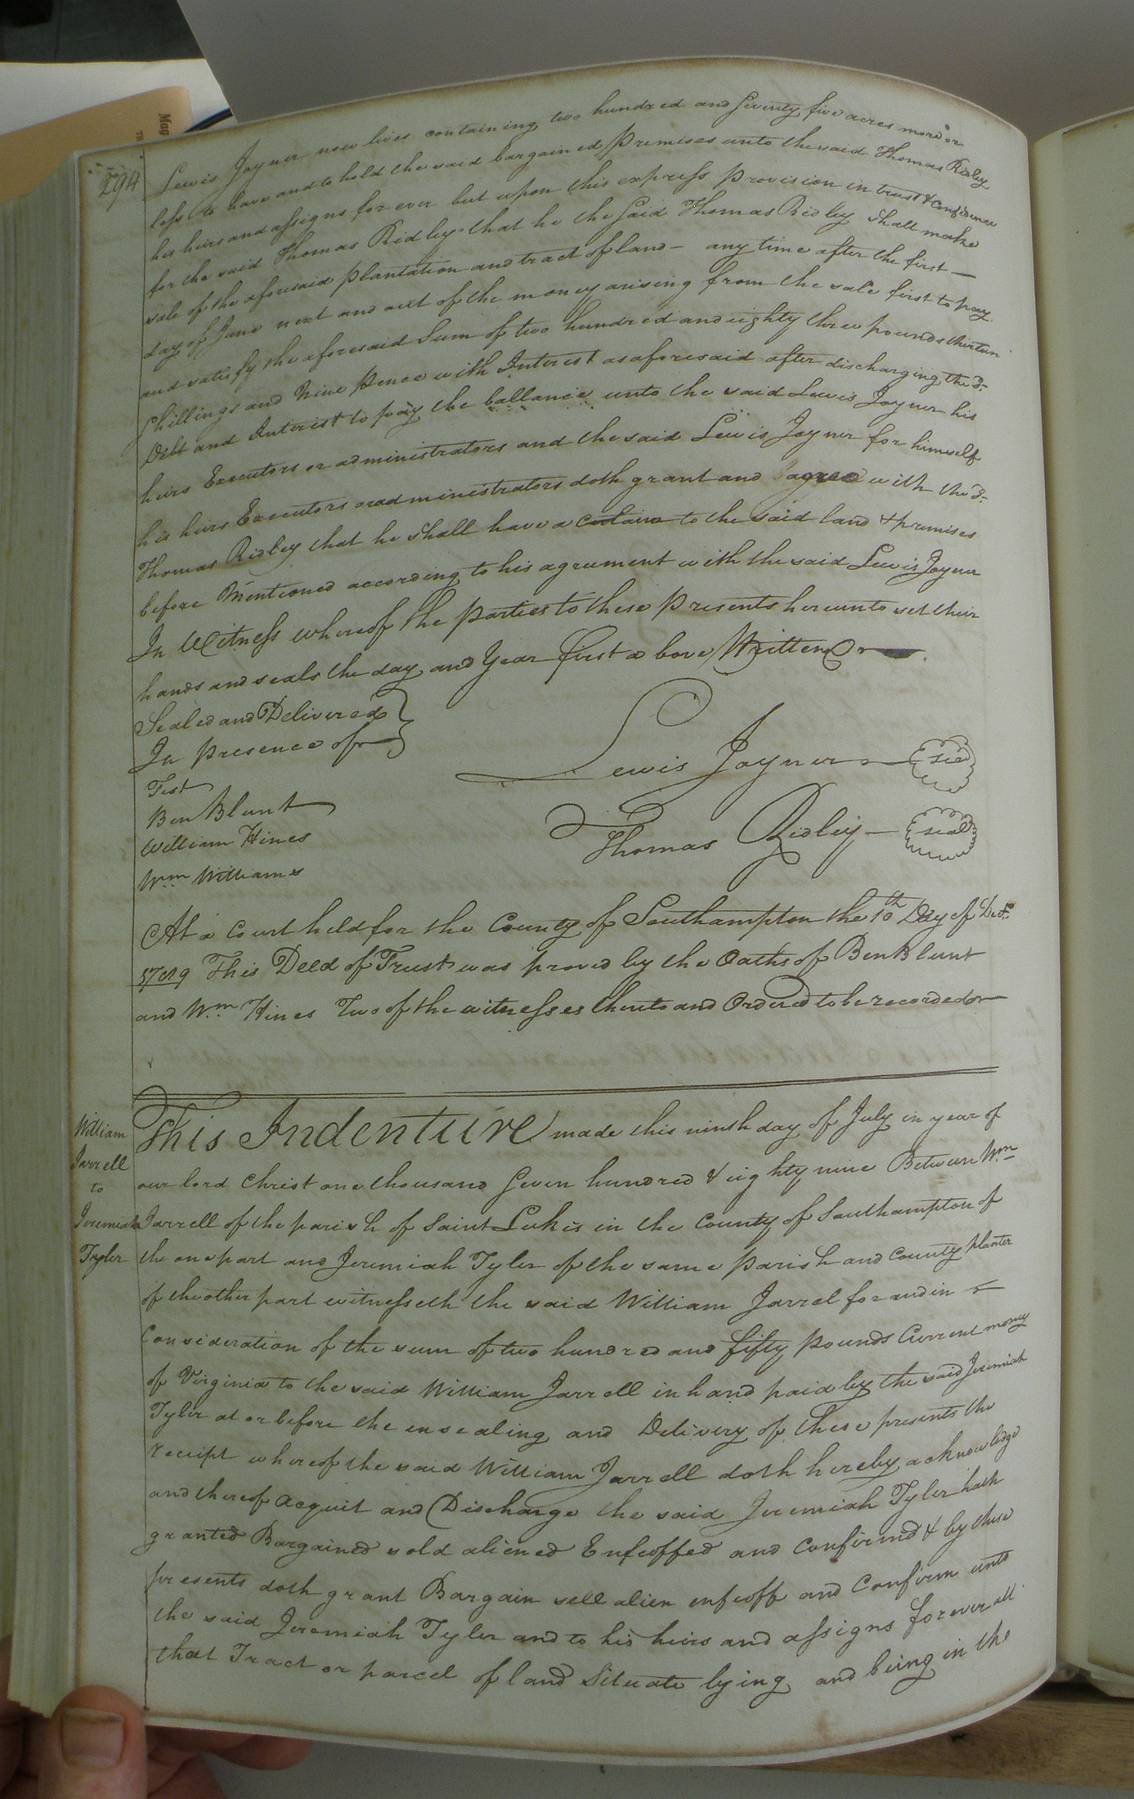 294
Lewis Joyner now lives containing two hundred and Seventy five acres more or
less to have and to hold the said bargained premises unto the said Thomas Ridley
his heirs and assigns for ever but upon this express provision in trust & confidence
for the said Thomas Ridley that he the said Thomas Ridley shall make
sale of the aforesaid plantation and tract of land - any time after the first —
day of June next and out of the money arising from the sale first to pay
and satisfy the aforesaid Sum of two hundred and eighty three pounds thirteen
Shillings and Nine pence with Interest as aforesaid after discharging the sd
Debt and Interist to pay the ballance unto the said Lewis Joyner his
heirs Executors or administrators and the said Lewis Joyner for himself
his heirs Executors and administrators doth grant and agree with the sd
Thomas Ridley that he shall have a to the said land & premises
before Mentioned according to his agreement with the said Lewis Joyner
In Witness whereof the parties to these presents hereunto set their
hands and seals the day and Year first above Written
Sealed and Delivered
In presence of
Test
Ben Blunt
William Hines
Wm Williams
Lewis Joyner seal
Thomas Ridley - seal
At a Court held for the County of Southampton the 10th Day of Decr.
1789 This Deed of Trust was proved by the Oaths of Ben Blunt
and Wm Hines Two of the witnesses thereto and Ordered to be recorded
William
Jarrell
to
Jeremiah
Tyler
This Indenture made this ninth day of July in year of
our lord Christ one thousand Seven hundred & eighty nine Between Wm
Jarrell of the parish of Saint Lukes in the County of Southampton of
the one part and Jeremiah Tyler of the same parish and County planter
of the other part witnesseth the said William Jarrel for and in
Consideration of the sum of two hundred and fifty pounds Current money
of Virginia to the said William Jarrell in hand paid by the said Jeremiah
Tyler at or before the ensealing and Delivery of these presents the
receipt whereof the said William Jarrell doth hereby acknowledge
and thereof acquit and Discharge the said Jeremiah Tyler hath
granted Bargained sold aliened Enfeoffed and Confirmed & by these
presents doth grant Bargain sell alien enfeoff and Confirm unto
the said Jeremiah Tyler and to his heirs and assigns forever all
that Tract or parcel of land Situate lying and being in the